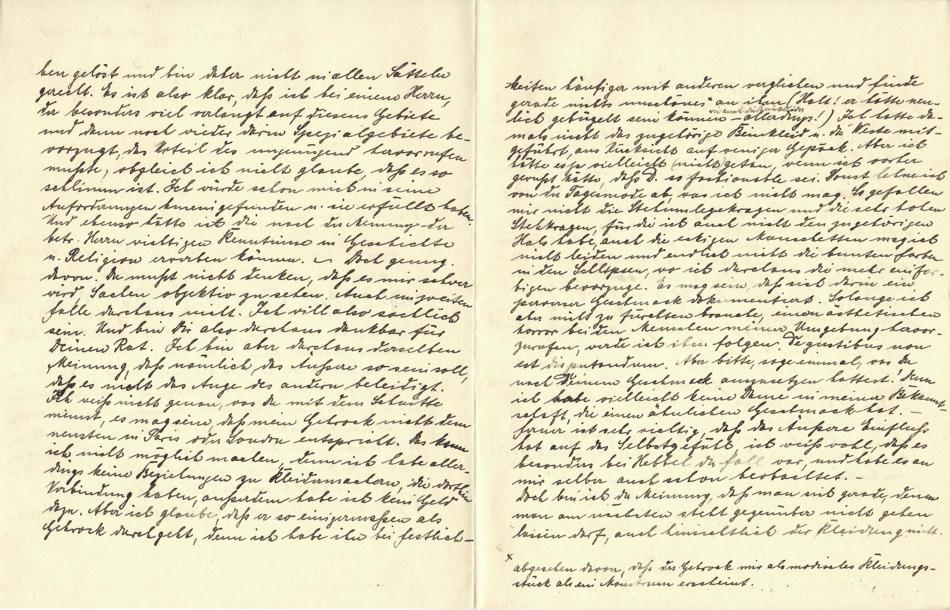 ben gelöst und bin daher nicht in allen Sätteln
gerecht. Es ist also klar, daß ich bei einem Herrn,
der besonders viel verlangt auf diesem Gebiete
und dann noch wieder darin Spezialgebiete be-
vorzugt, das Urteil des ungenügend hervorrufen
mußte, obgleich ich nicht glaube, daß es so
schlimm ist. Ich würde schon mich in seine
Anforderungen hineingefunden u. sie erfüllt haben.
Und ebenso hätte ich die nach der Meinung der
betr. Herrn wichtigen Kenntnisse in Geschichte
u. Religion erwerben können. Doch genug
davon. Du mußt nicht denken, daß es mir schwer
wird Sachen objektiv zu sehen. Auch im zweiten
Falle durchaus nicht. Ich will also sachlich
sein. Und bin Dir also durchaus dankbar für
Deinen Rat. Ich bin aber durchaus derselben
Meinung, daß nämlich das Äußere so sein soll,
daß es nicht das Auge des andern beleidigt.
Ich weiß nicht genau, was du mit dem Schnitte
meinst, es mag sein, daß mein Gehrock nicht dem
neusten in Paris oder London entspricht. Das kann
ich nicht möglich machen, denn ich habe aller-
dings keine Beziehungen zu Kleidermachern, die dorthin
Verbindung haben, außerdem habe ich kein Geld
dazu. Aber ich glaube, daß er so einigermaßen als
Gehrock durchgeht, denn ich habe ihn bei Festlich-
keiten häufiger mit anderen verglichen und finde
gerade nichts unschönes x an ihm. Halt! er hätte neu-
lich gebügelt sein können – allerdings!) Ich hatte da-
mals nicht das zugehörige Beinkleid u. die Weste mit-
geführt, aus Rücksicht auf weniger Gepäck. Aber ich
hätte es ja vielleicht nicht getan, wenn ich vorher
gewußt hätte, daß D. so fashionable sei. Sonst lehne ich
von der Tagesmode ab, was ich nicht mag. So gefallen
mir nicht die Stehumlegekragen und die sehr hohen
Stehkragen, für die ich auch nicht den zugehörigen
Hals habe, auch die eckigen Manschetten mag ich
nicht leiden und endlich nicht die bunten Farben
in den Schlipsen, wo ich durchaus die mehr einfar-
bigen bevorzuge. Es mag sein, daß sich darin ein
perverser Geschmack dokumentiert. Solange ich
aber nicht zu fürchten brauche, einen ästhetischen
horror bei den Menschen meiner Umgebung hervor-
zurufen, werde ich ihm folgen. De gustibus non
est disputandum. Aber bitte, sage einmal, was du
nach Deinem Geschmack auszusetzen hattest! Denn
ich habe vielleicht keine Dame in meiner Bekannt-
schaft, die einen ähnlichen Geschmack hat. –
Ferner ist sehr richtig, daß das Äußere Einfluß
hat auf das Selbstgefühl, ich weiß wohl, daß es
besonders bei Hebbel der Fall war, und habe es an
mir selber auch schon beobachtet. –
Doch bin ich der Meinung, daß man sich gerade, denen
man am nächsten steht gegenüber nicht gehen
lassen darf, auch hinsichtlich der Kleidung nicht.
x abgesehen davon, daß der Gehrock mir als modisches Kleidungs-
stück als ein Monstrum erscheint.